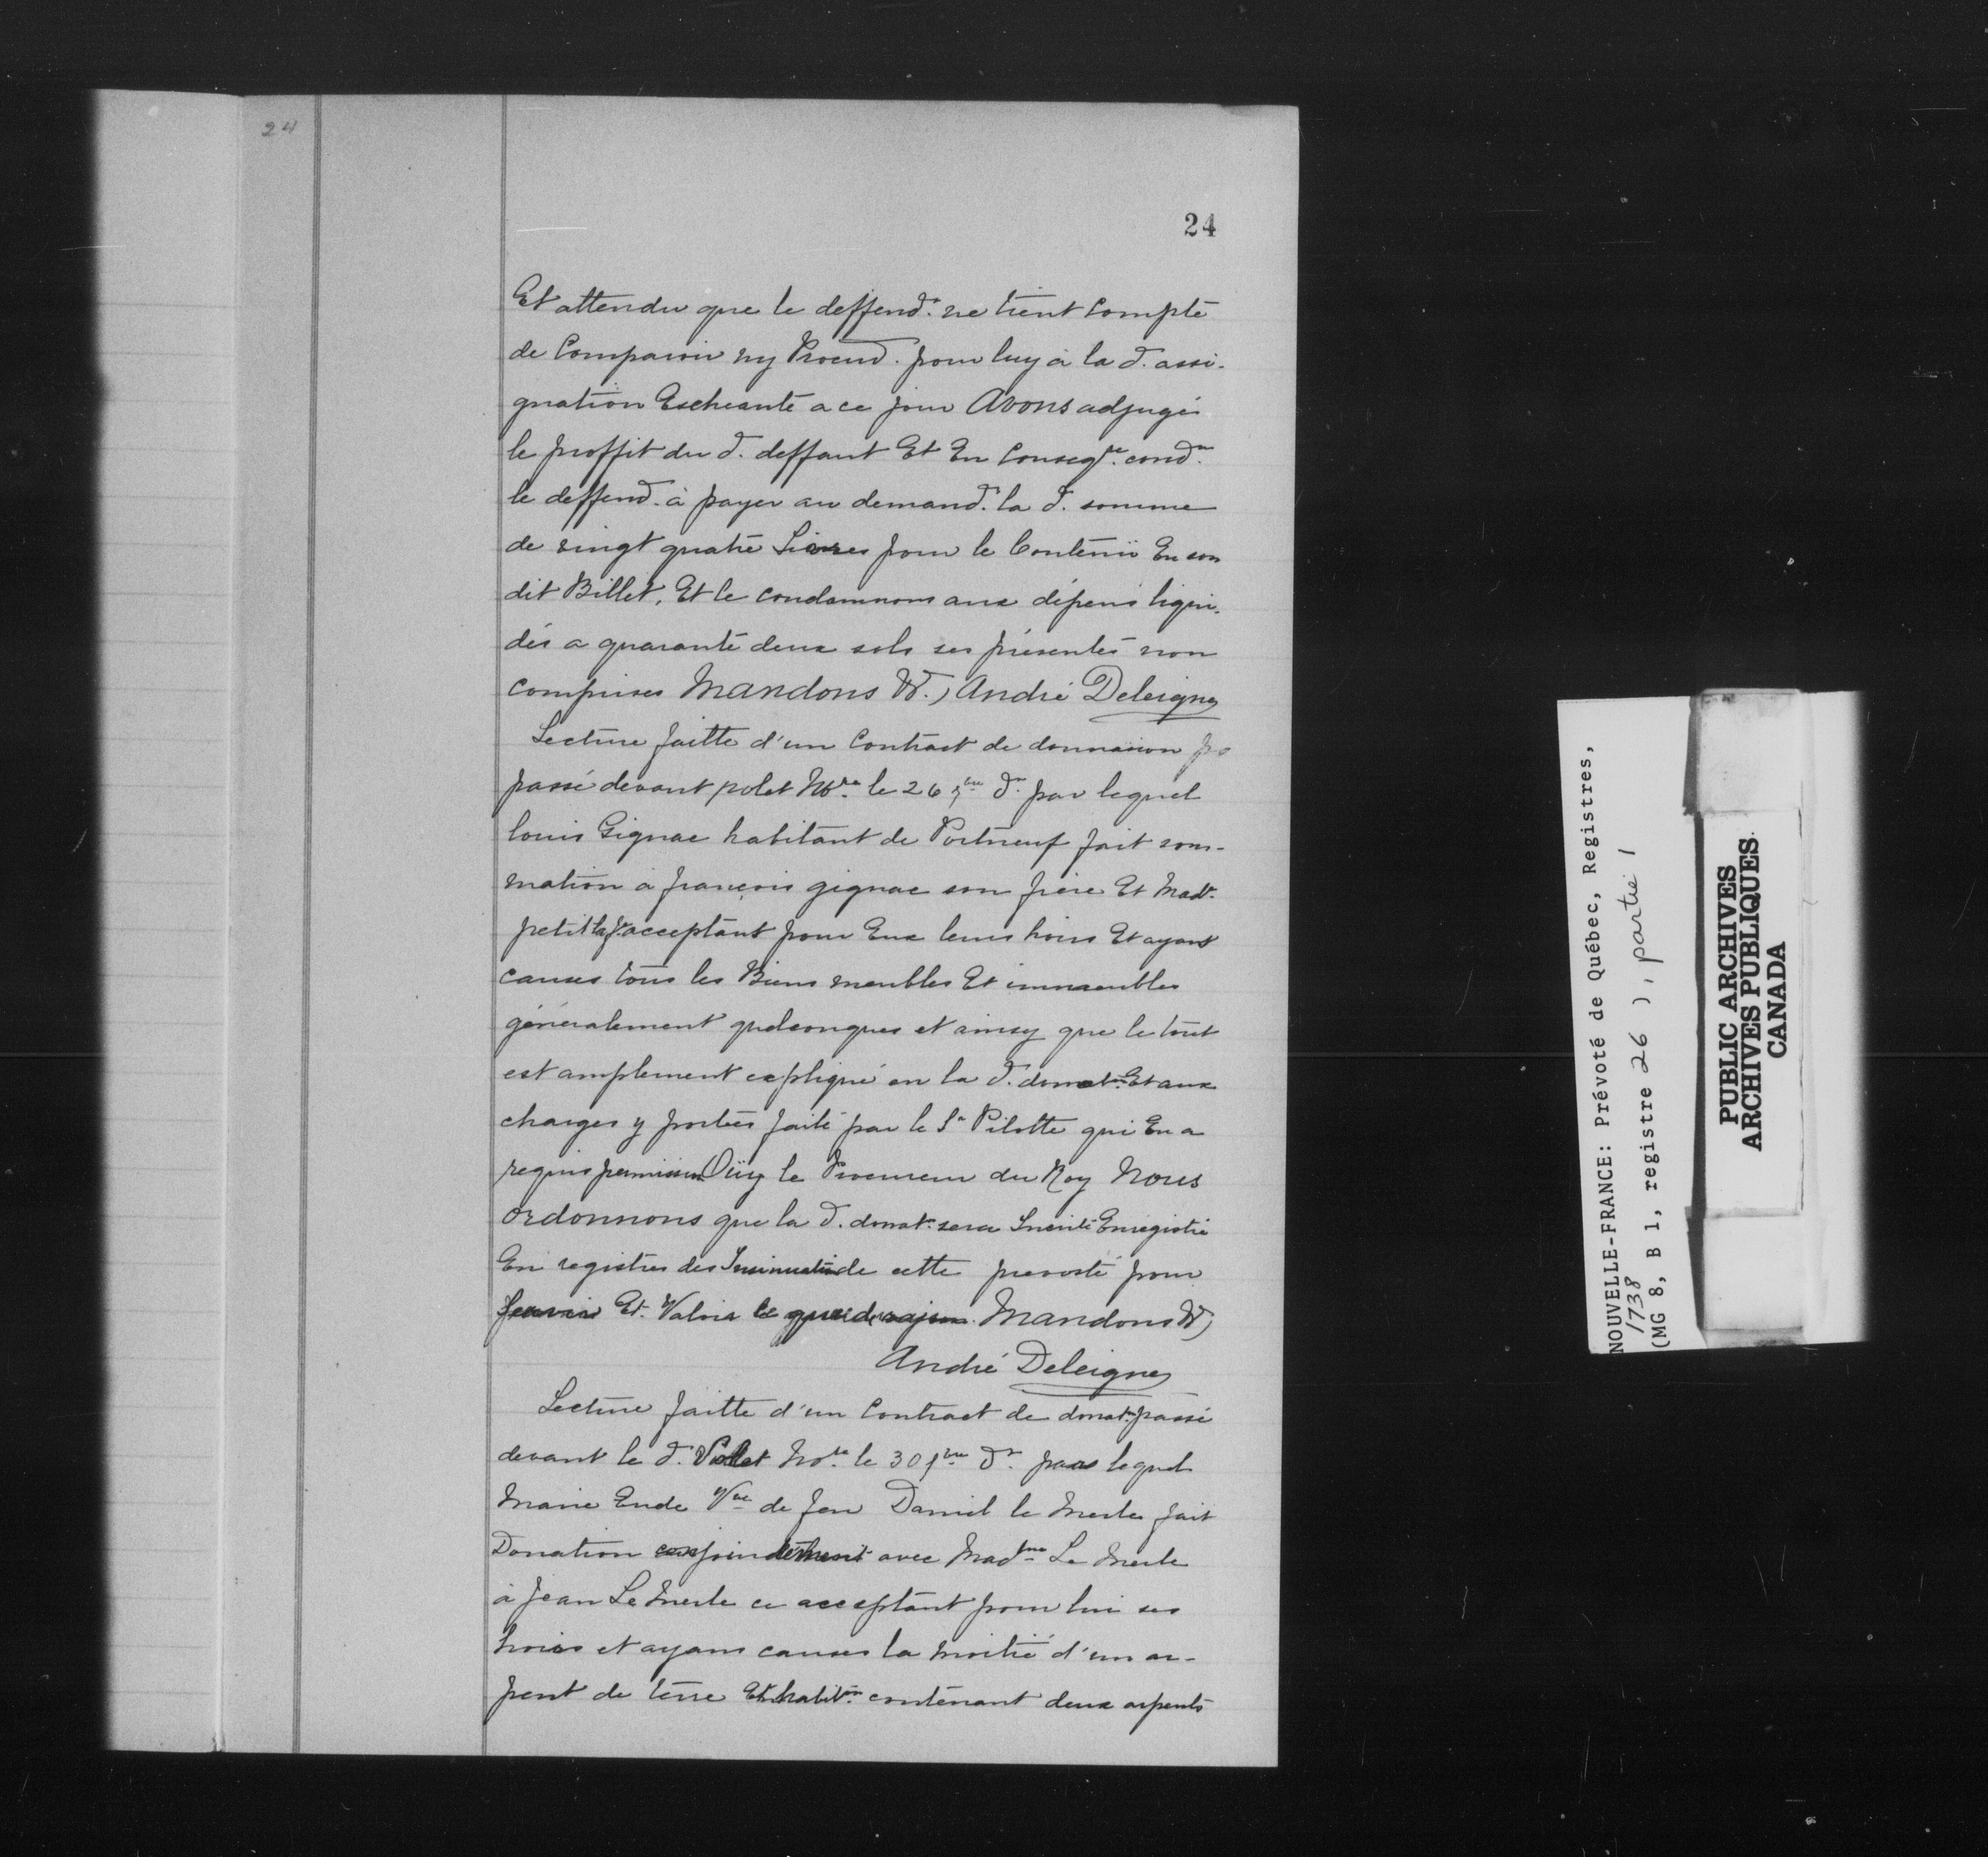 24
24
Et attendu que le deffend.r ne tient Compte
de Comparoir ny Procur.r pour luy à la d. assi-
gnation Escheante a ce jour Avons adjugés
le proffit du d. deffaut Et En Conseq.ce cond.on
le deffend.r à payer au demand.r la d. somme
de vingt quatre Livres pour le Contenü En son
dit Billet, Et le condamnons aux dépens liqui-
dés a quarante deux sols ses présentes non
comprises Mandons &.) André Deleigne
Lecture faitte d'un Contract de donnaison
passé devant polet No.re le 26 d.r par lequel
louis Gignac habitant de Portneuf fait
mation à françois gignac son frère Et Mad.e
petit acceptant pour Eux leurs hoirs Et ayant
causes tous les Biens meubles Et immeubles
généralement quelconques et ainsy que le tout
est amplement expliqué en la d. donat.on Et aux
charges y portées faite par le S.r Pilotte qui En a
requis permission Oüy le Procureur du Roy Nous
Ordonnons que la d. donat.on sera Enregistré
En registres des de cette prevosté pour
Et Valoir ce que de raison. Mandons &)
André Deleigne
Lecture faitte d'un Contract de donat.on passé
devant le d. Pollet No.re le 30 d.r par lequel
Marie Ende V.ve de feu Daniel le Merle fait
Donation conjointement avec Mad.ne Le Merle
à Jean Le Merle ce acceptant pour lui ses
hoirs et ayans causes la moitié d'un ar-
pent de terre Et habit.on contenant deux arpents
NOUVELLE-FRANCE: Prévoté de Québec, Registres,
1738
(MG 8, B 1, registre 26 ), partie 1
PUBLIC ARCHIVES
ARCHIVES PUBLIQUES
CANADA